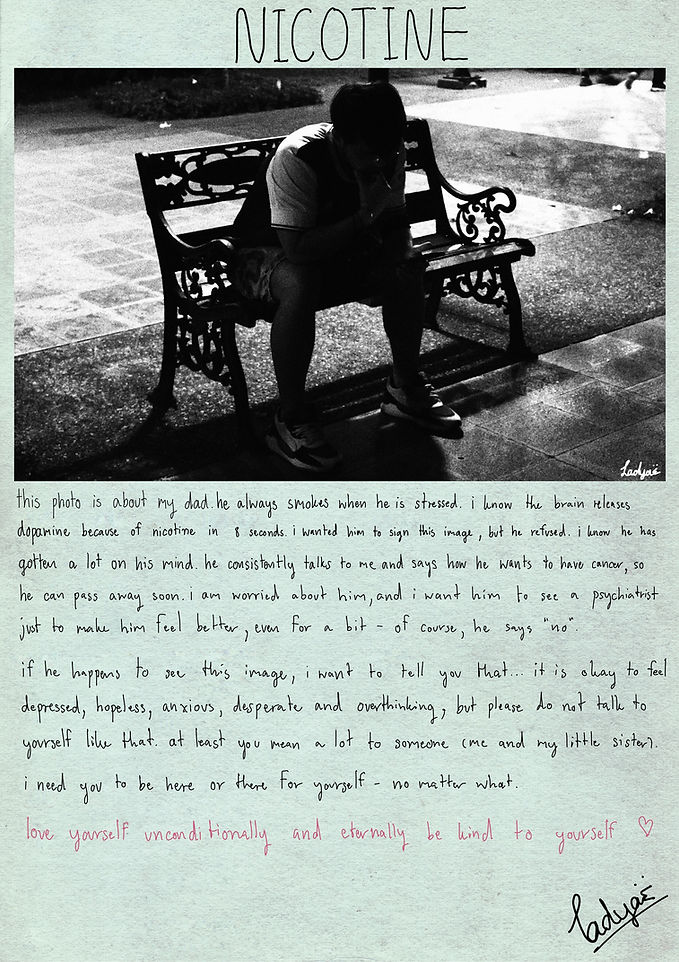 NICOTINE
Ladyaiś
this photo is about my dad. he always smokes when he is stressed. i know the brain releases
dopamine because of nicotine in 8 seconds. i wanted him to sign this image, but he refused. i know he has
gotten a lot on his mind. he consistently talks to me and says how he wants to have cancer, so
he can pass away soon. i am worried about him, and i want him to see a psychiatrist
just to make him feel better, even for a bit - of course, he says "no".
if he happens to see this image, i want to tell you that... it is okay to feel
depressed, hopeless, anxious, desperate and overthinking, but please do not talk to
yourself like that. at least you mean a lot to someone (me and my little sister).
i need you to be here or there for yourself - no matter what.
love yourself unconditionally and eternally be kind to yourself ♡